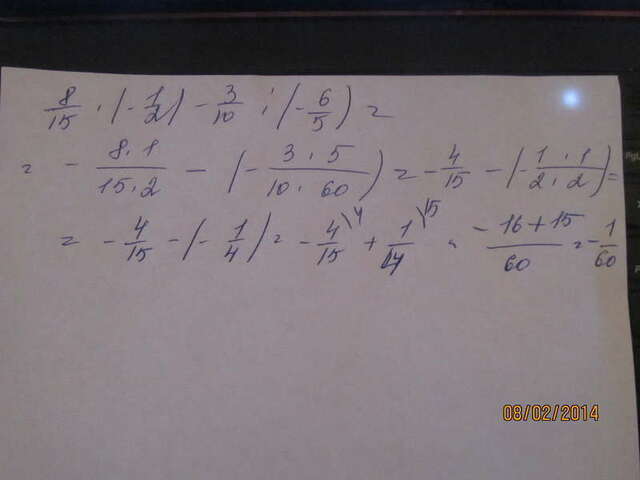 8/15 · (-1/2) - 3/10 : (-6/5) =
= - 8·1/15·2 - (- 3·5/10·60) = - 4/15 - (- 1·1/2·2) =
= - 4/15 - (- 1/4) = - 4/15 \4 + 1/4 \15 = -16+15/60 = - 1/60
08/02/2014